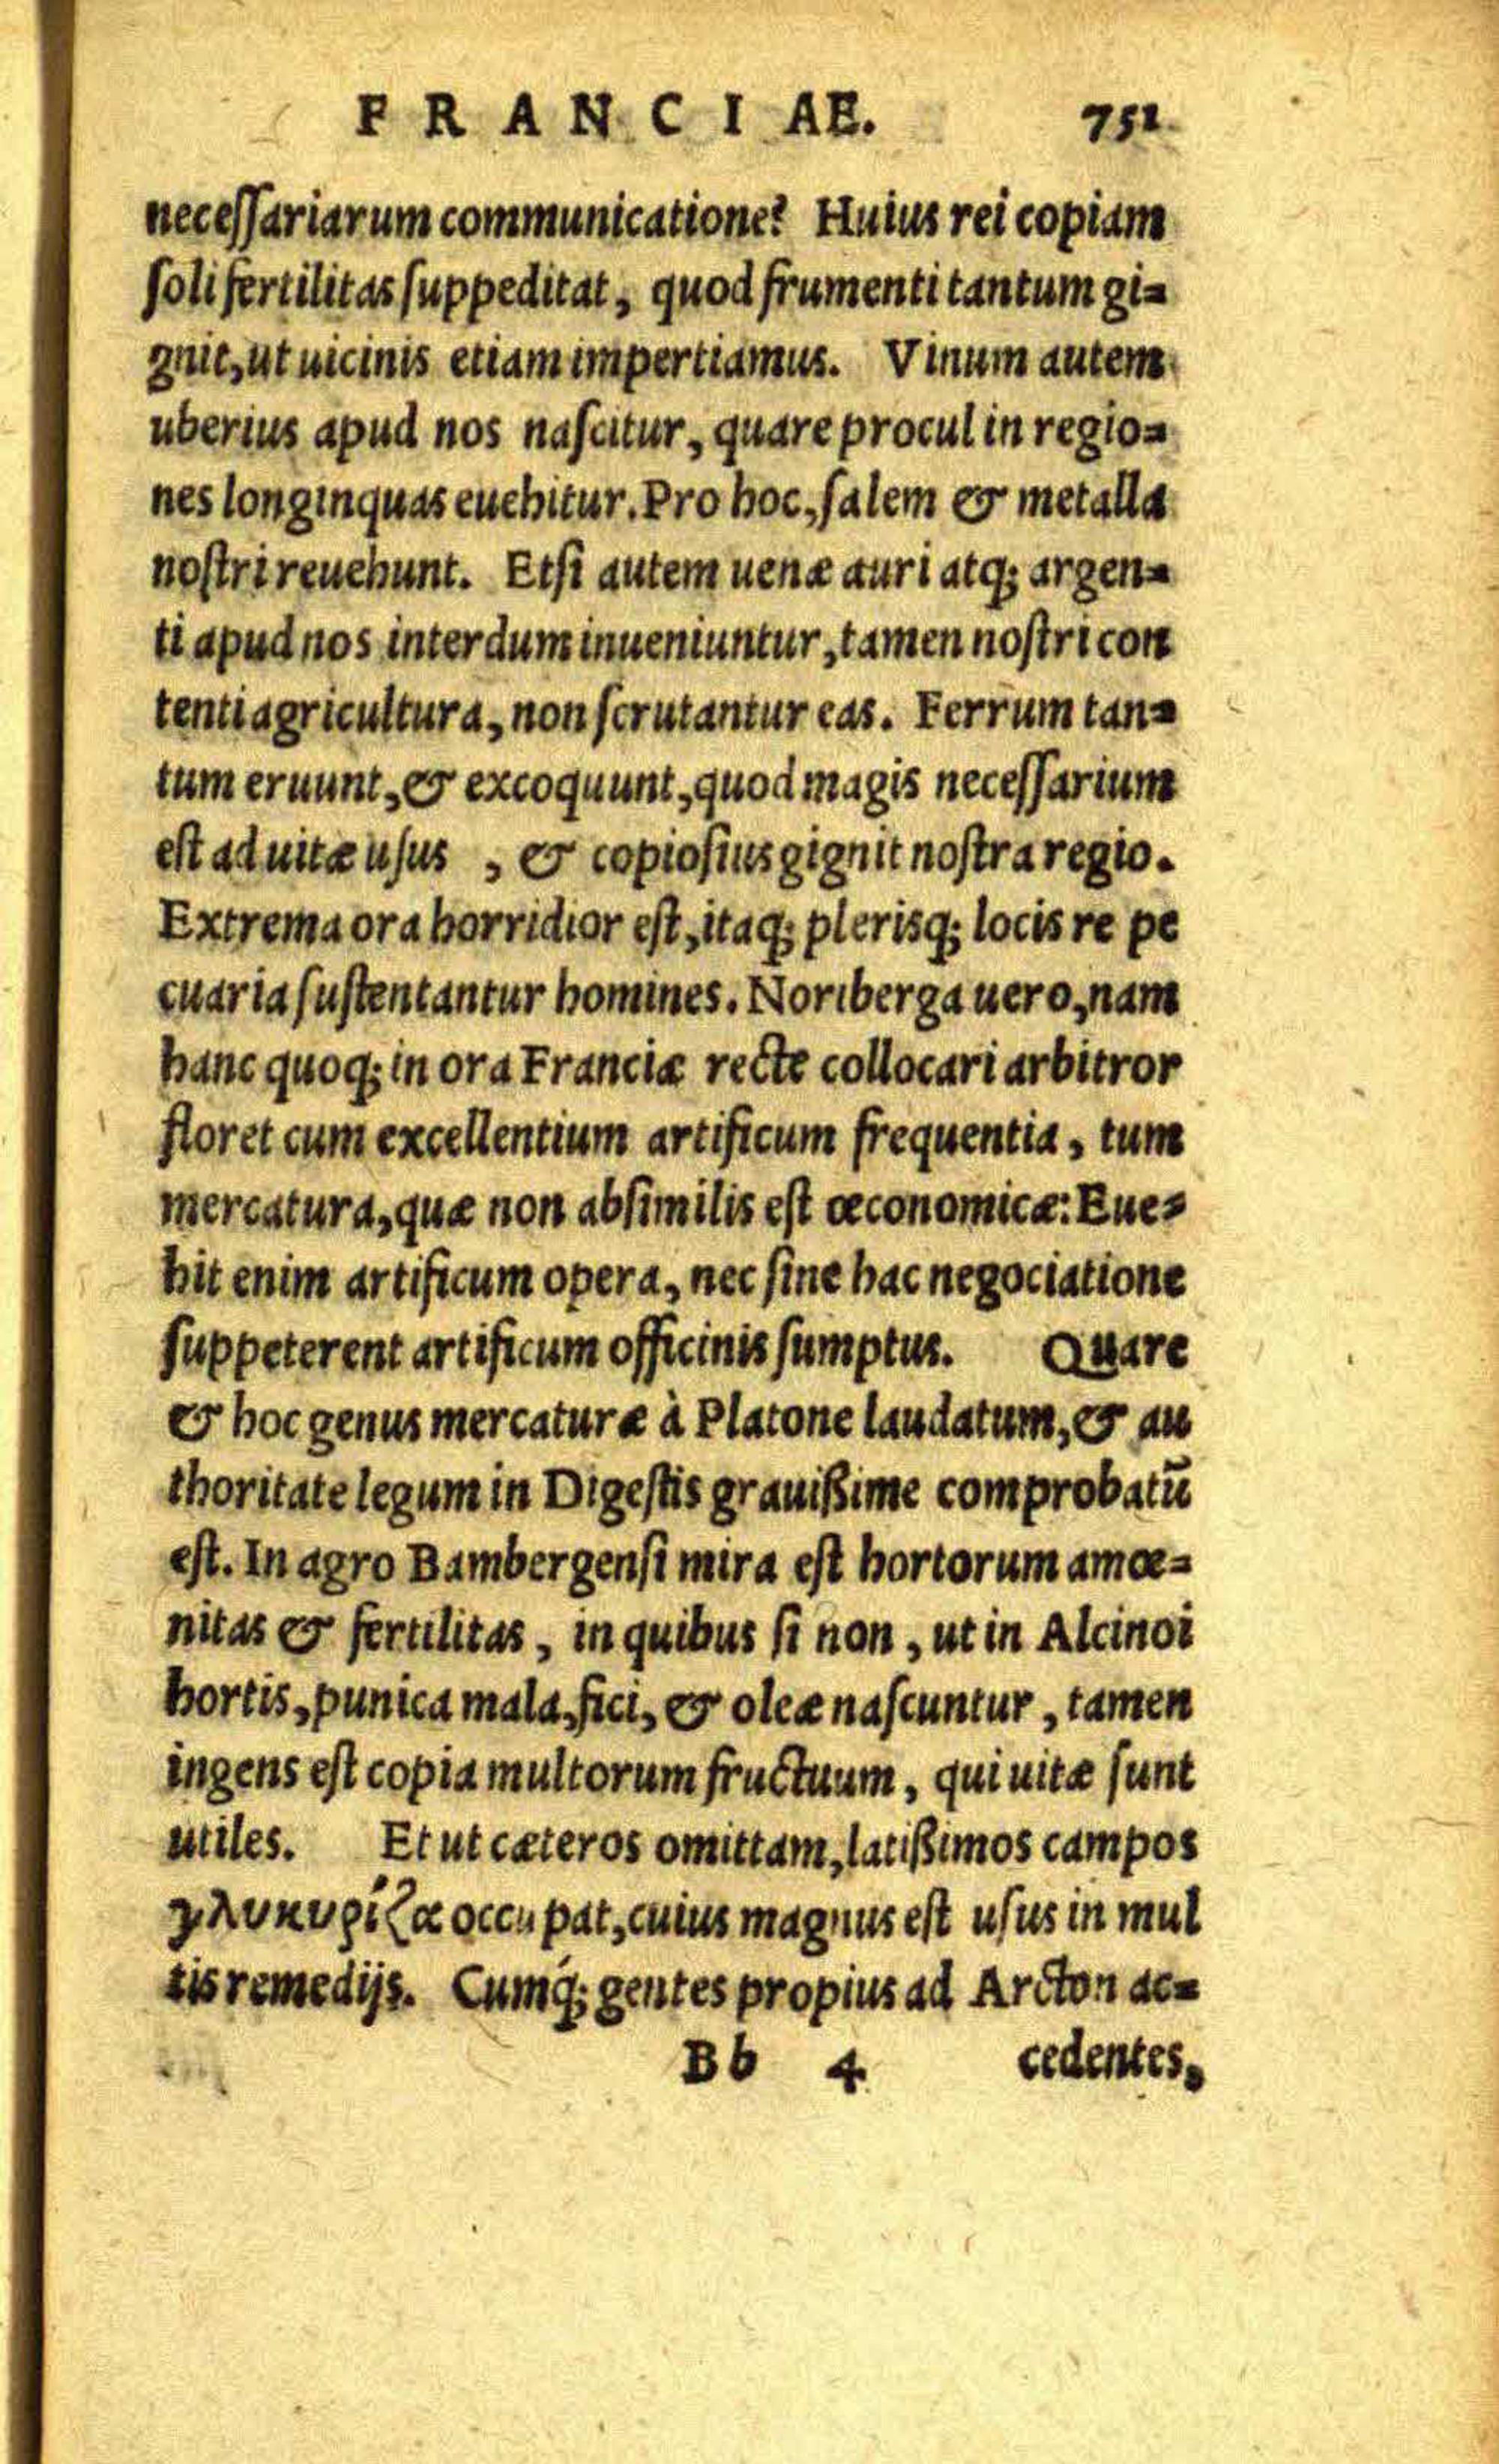 FRANCIAE. 751
neceſſariarum communicatione? Huius rei copiam
ſoli fertilitas ſuppeditat, quod frumenti tantum gi=
gnit, ut uicinis etiam impertiamus. Vinum autem
uberius apud nos naſcitur, quare procul in regio=
nes longinquas euehitur. Pro hoc, ſalem & metalla
noſtri reuehunt. Etſi autem uenæ auri atq; argen=
ti apud nos interdum inueniuntur, tamen noſtri con
tenti agricultura, non ſcrutantur eas. Ferrum tan=
tum eruunt, & excoquunt, quod magis neceſſarium
eſt ad uitæ uſus , & copioſius gignit noſtra regio.
Extrema ora horridior eſt, itaq; plerisq; locis re pe
cuaria ſuſtentantur homines. Noriberga uero, nam
hanc quoq; in ora Franciæ recte collocari arbitror
floret cum excellentium artificum frequentia, tum
mercatura, quæ non abſimilis eſt œconomicæ: Eue=
hit enim artificum opera, nec ſine hac negociatione
ſuppeterent artificum officinis ſumptus. Quare
& hoc genus mercaturæ à Platone laudatum, & au
thoritate legum in Digeſtis grauißime comprobatū
eſt. In agro Bambergenſi mira eſt hortorum amœ=
nitas & fertilitas, in quibus ſi non, ut in Alcinoi
hortis, punica mala, fici, & oleæ naſcuntur, tamen
ingens eſt copia multorum fructuum, qui uitæ ſunt
utiles. Et ut cæteros omittam, latißimos campos
γλυκυρίζα occupat, cuius magnus eſt uſus in mul
tis remedijs. Cumq́; gentes propius ad Arcton ac=
Bb 4 cedentes,